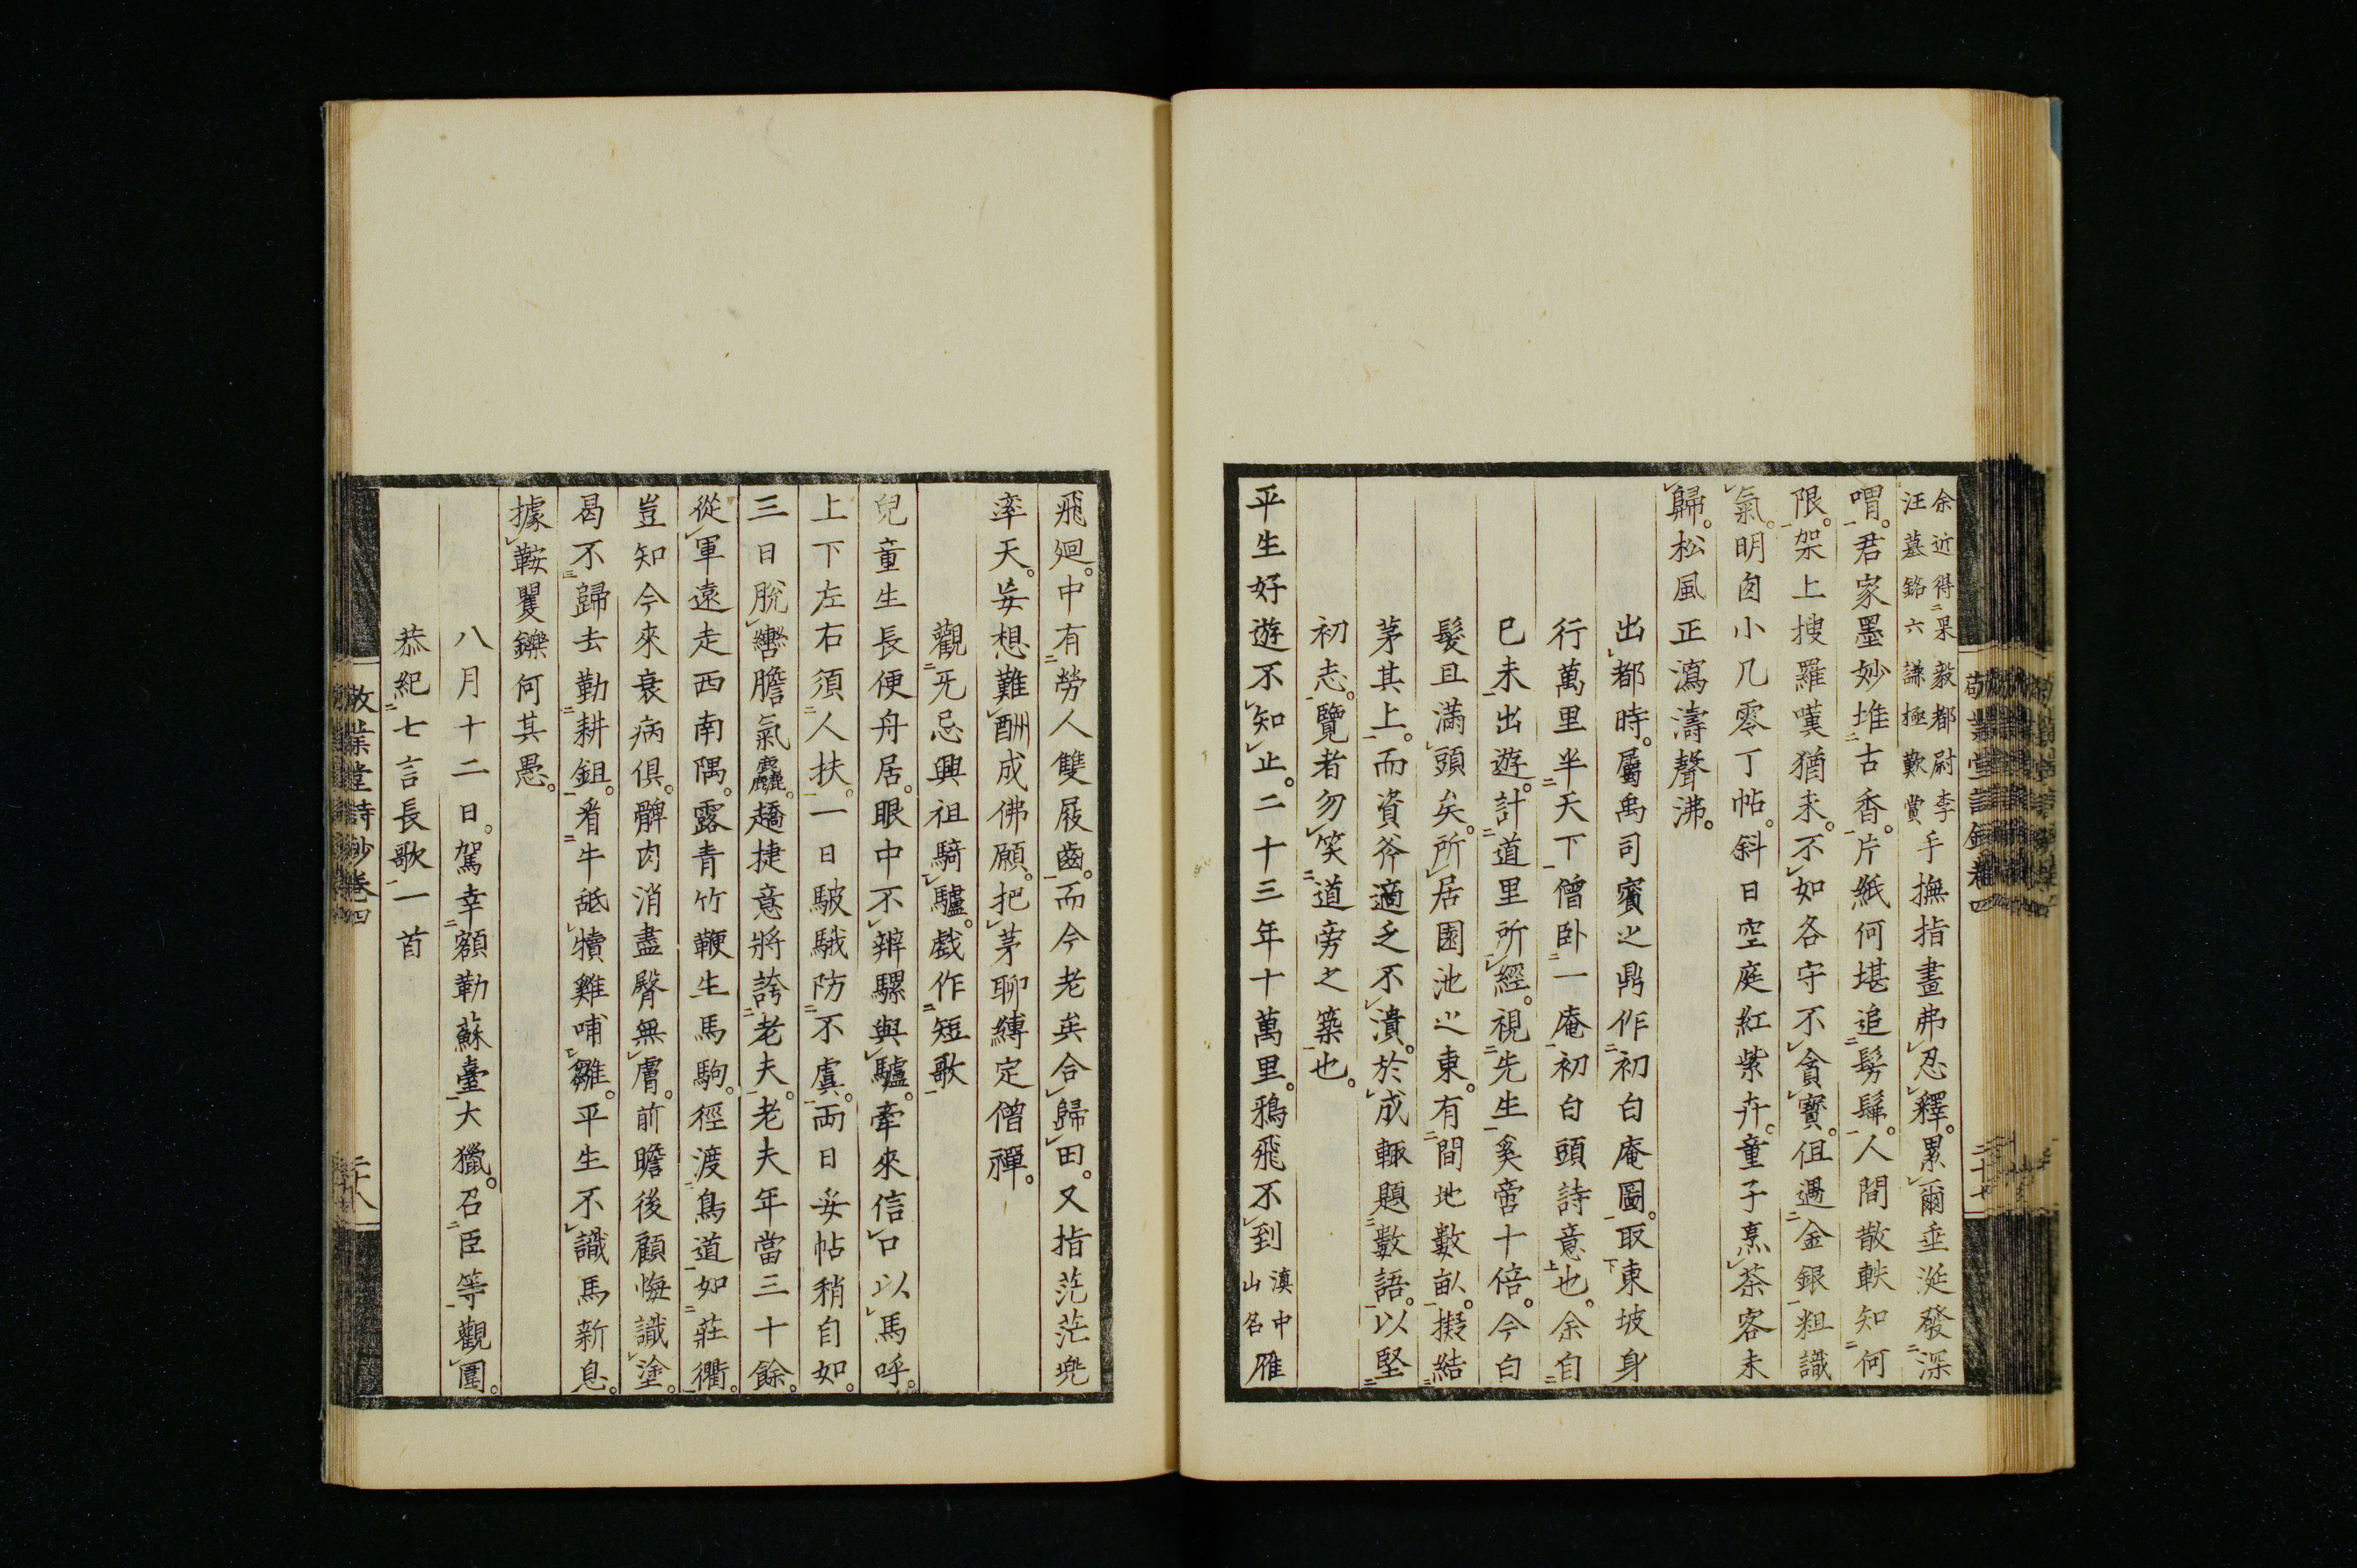 余近得果毅都尉李
汪墓銘六謙極歎賞
手撫指畫弗忍釋。累爾垂涎發深
喟。君家墨妙堆古香。片紙何堪追髣髴。人間散軼知何
限。架上搜羅嘆猶未。不如各守不貪寶。但遇金銀粗識
氣。明囱小几零丁帖。斜日空庭紅紫卉。童子烹茶客未
歸。松風正瀉濤聲沸。
出都時。屬禹司賓之鼎作初白庵圖。取東坡身
行萬里半天下僧卧一庵初白頭詩意也。余自
巳未出遊。計道里所經。視先生奚啻十倍。今白
髮且滿頭矣。所居園池之東。有間地數畝。擬結
茅其上。而資斧適乏不潰。於成輙題數語。以堅
初志。覽者勿笑道旁之築也。
平生好遊不知止。二十三年十萬里。鴉飛不到
滇中
山名
雁
飛廻。中有勞人雙屐齒。而今老矣合歸田。又指茫茫兠
率天。妄想難酬成佛願。把茅聊縛定僧禪。
觀旡忌興祖騎驢。戲作短歌
兒童生長便舟居。眼中不辨騾與驢。牽來信口以馬呼。
上下左右須人扶。一日駊騀防不虞。兩日妥帖稍自如。
三日脫轡膽氣麤。趫捷意將誇老夫。老夫年當三十餘。
從軍遠走西南隅。露青竹鞭生馬駒。徑渡鳥道如莊衢。
豈知今來衰病俱。髀肉消盡臀無膚。前瞻後顧悔識塗。
曷不歸去勤耕鉏。看牛舐犢雞哺雛。平生不識馬新息。
據鞍矍鑠何其愚。
八月十二日。駕幸額勒蘇臺大獵。召臣等觀圍。
恭紀七言長歌一首
敬業堂詩鈔卷四
二十八